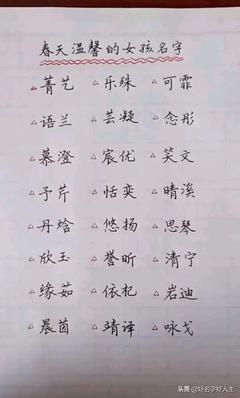 春天温馨的女孩名字
菁艺 乐殊 可霏
语兰 芸凝 念彤
慕澄 宸优 笑文
予芹 恬奕 晴溪
丹焓 悠扬 思琴
欣玉 誉昕 清宁
缘茹 依杞 岩迪
晨茵 靖译 咏戈
头条 @好名字好人生